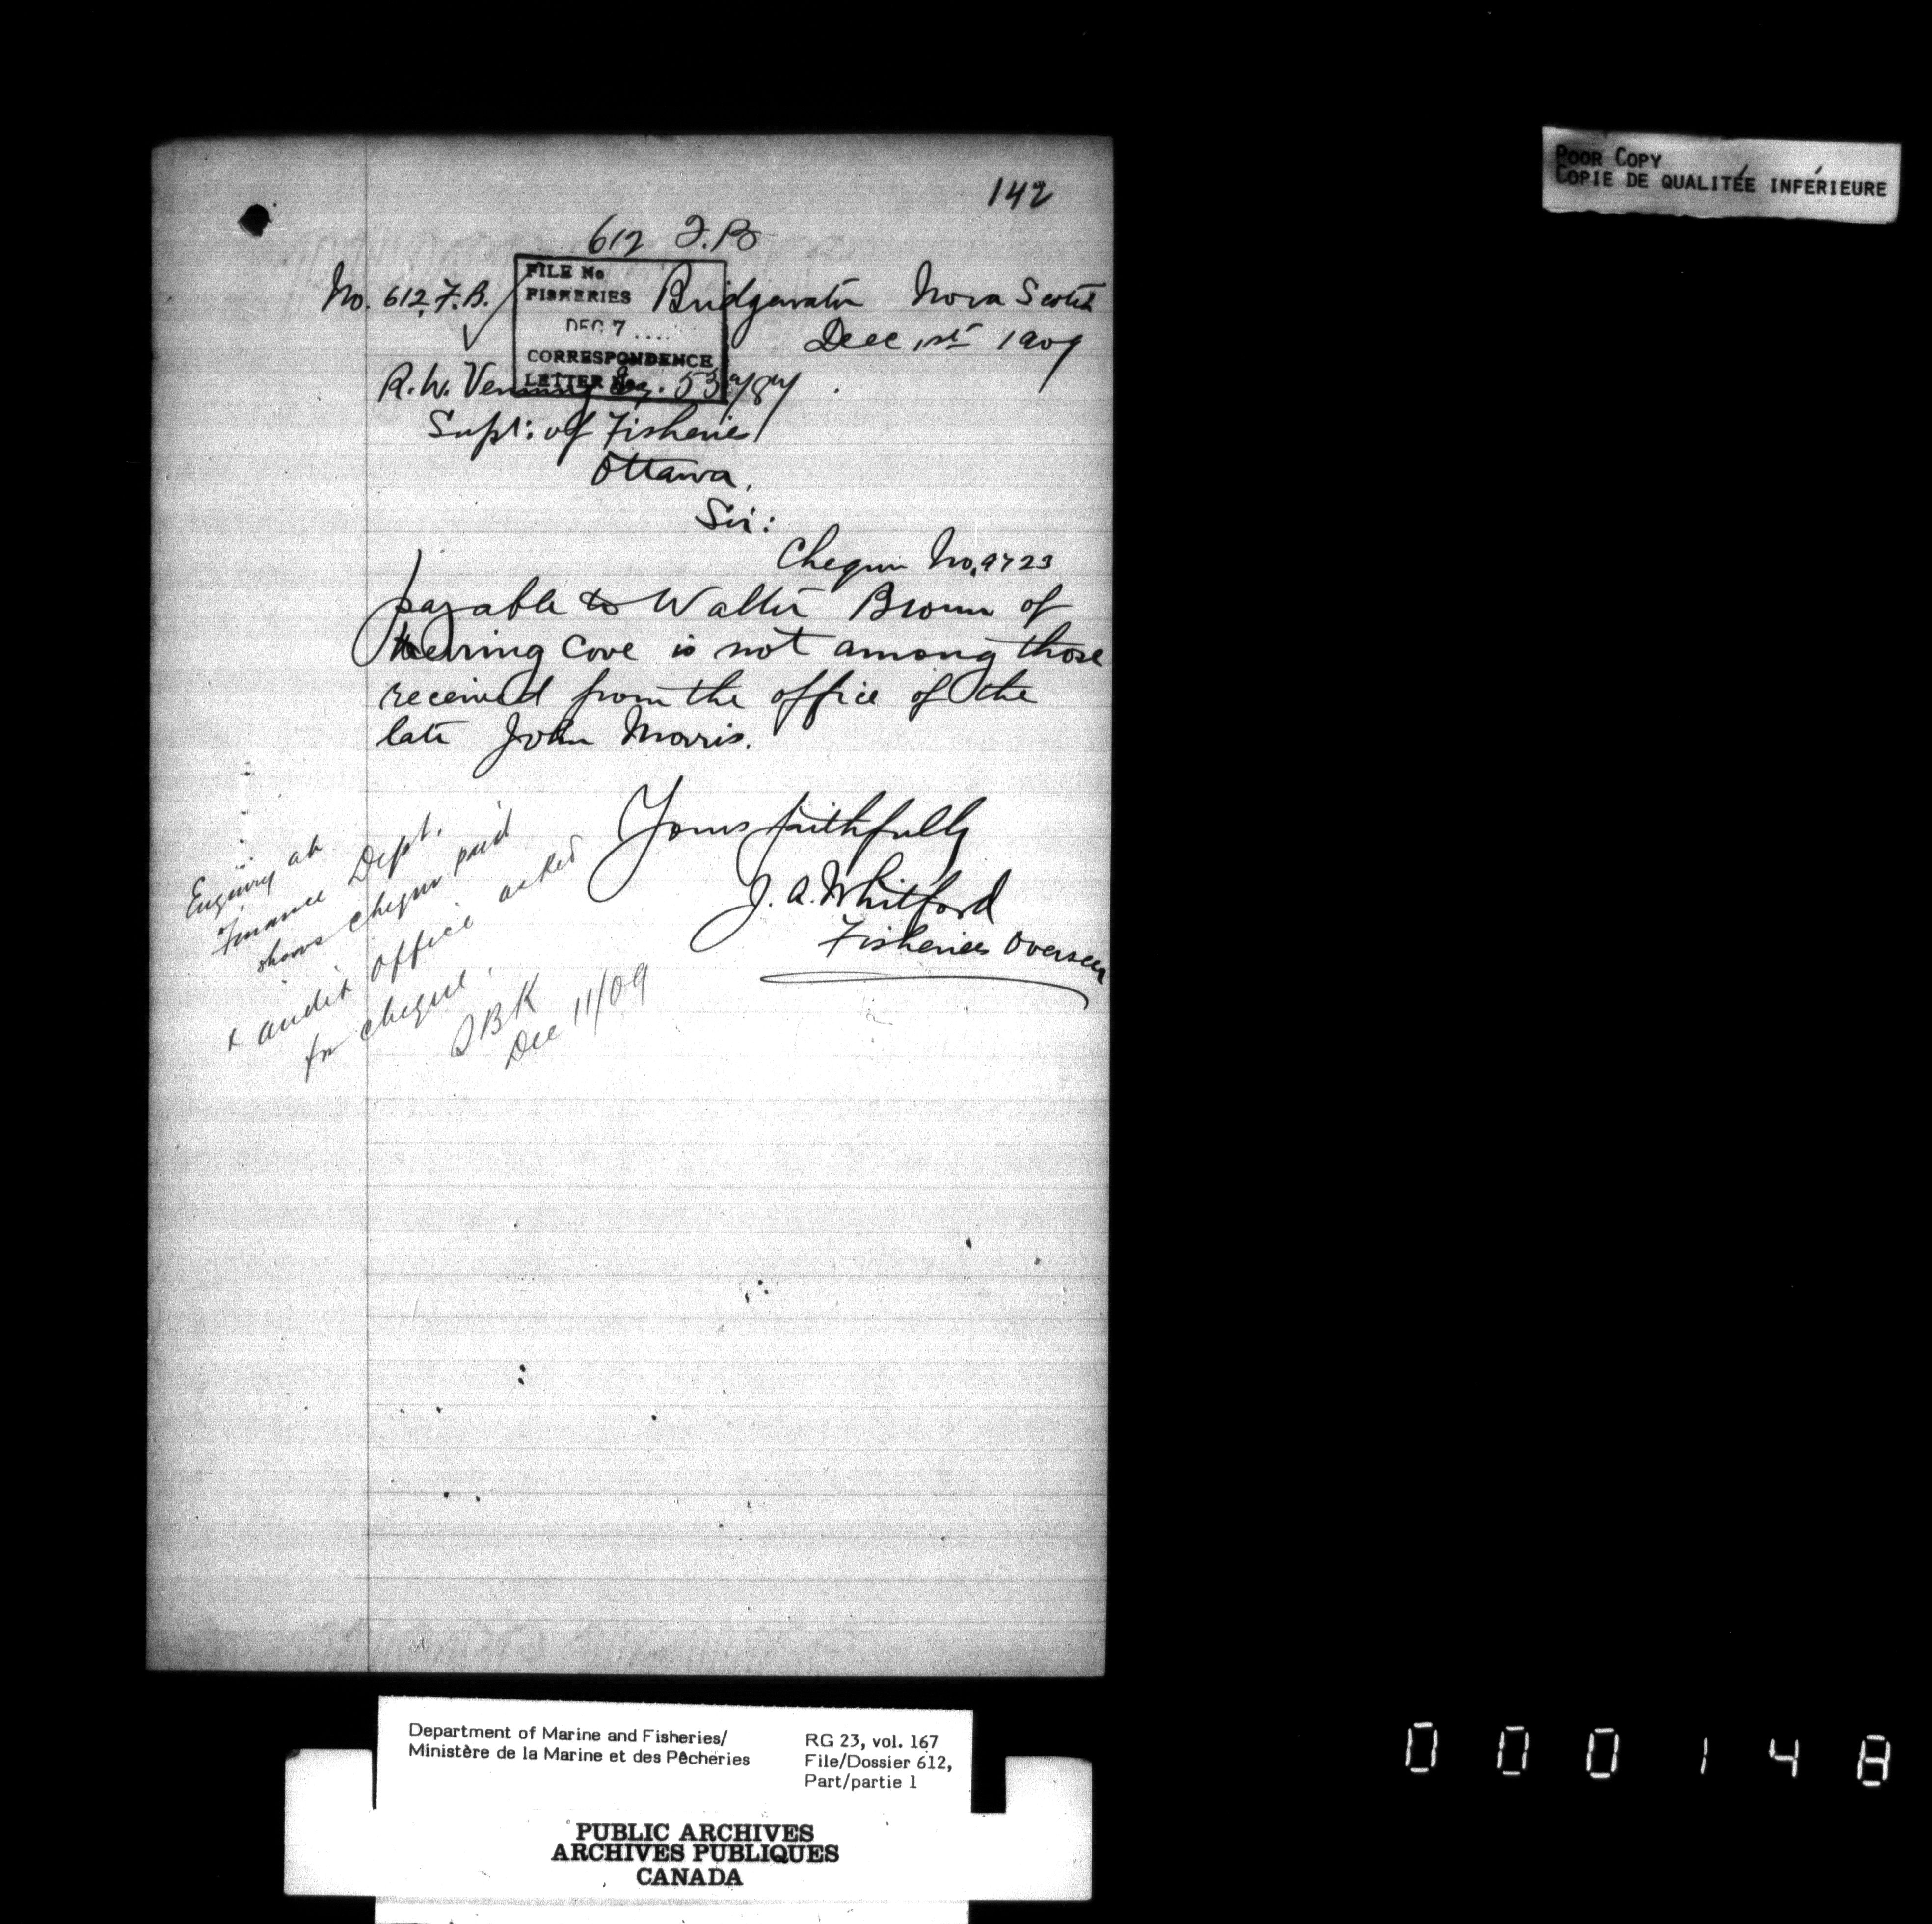 POOR COPY
COPIE DE QUALITÉE INFÉRIEURE
142
612 F.B
No. 612, F.B.
FILE No
FISHERIES
DEC 7
CORRESPONDENCE
LETTER No.
Bridgewater Nova Scotia
Dec 1st 1909
R. W. Venning Esq.
Supt: of Fisheries
Ottawa.
Sir:
Cheque No. 9723
payable to Walter Brown of
Herring Cove is not among those
received from the office of the
late John Morris.
Yours faithfully
J. A. Whitford
Fisheries Overseer
Enquiry at
Finance Dept.
shows cheque paid
& audit office asked
for cheque.
Dec 11/09
Department of Marine and Fisheries/
Ministère de la Marine et des Pêcheries
RG 23, vol. 167
File/Dossier 612,
Part/partie 1
PUBLIC ARCHIVES
ARCHIVES PUBLIQUES
CANADA
000148